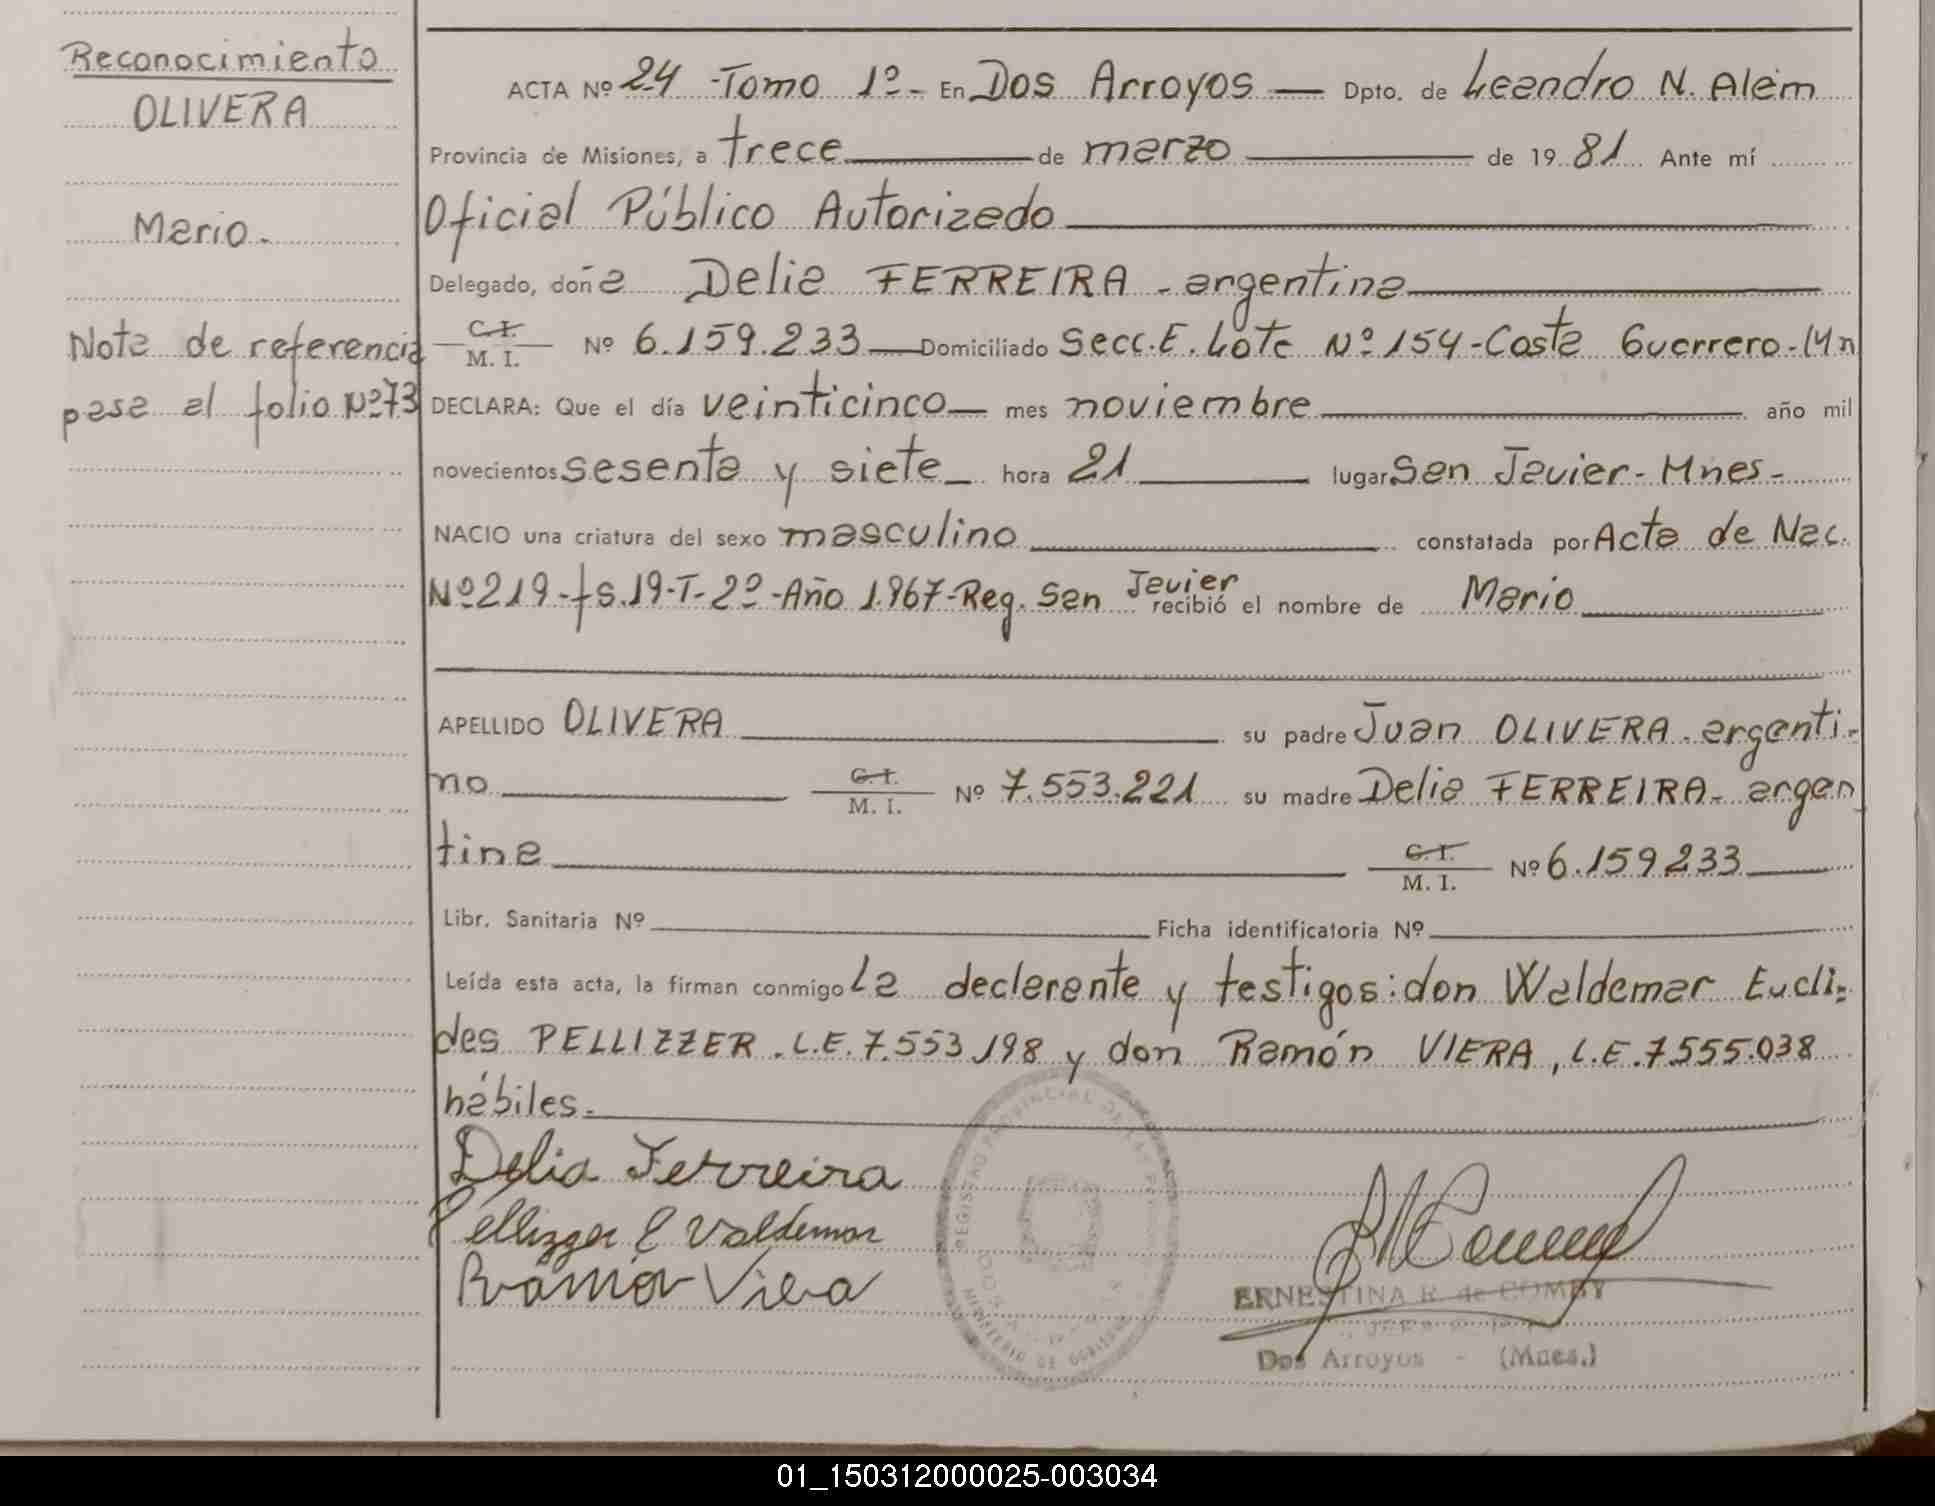 Reconocimiento
OLIVERA
Mario.
Nota de referencia
pasa al folio Nº73
ACTA Nº 24 -Tomo 1º- En Dos Arroyos — Dpto. de Leandro N. Alem
Provincia de Misiones, a trece de marzo de 19 81 Ante mí
Oficial Público Autorizado
Delegado, doña Delia FERREIRA - argentina
C.I. M. I. Nº 6.159.233 Domiciliado Secc.E. Lote Nº 154-Costa Guerrero-(Mn
DECLARA: Que el día veinticinco mes noviembre año mil
novecientos sesenta y siete hora 21 lugar San Javier-Mnes-
NACIO una criatura del sexo masculino constatada por Acta de Nac.
Nº219-fs.19-T-2º-Año 1.967-Reg. San Javier recibió el nombre de Mario
APELLIDO OLIVERA su padre Juan OLIVERA - argenti-
no C.I. M. I. Nº 7.553.221 su madre Delia FERREIRA - argen
tina C.I. M. I. Nº 6.159.233
Libr. Sanitaria Nº Ficha identificatoria Nº
Leída esta acta, la firman conmigo La declarente y testigos: don Waldemar Eucli-
des PELLIZZER . L.E. 7.553.198 y don Ramón VIERA, L.E. 7.555.038
hábiles.
Delia Ferreira
Pellizzer E Valdemar
Ramón Viera
REGISTRO PROVINCIAL DE LAS PERSONAS
MINISTERIO DE GOBIERNO
ERNESTINA R. de COMBY
Dos Arroyos - (Mnes.)
01_150312000025-003034